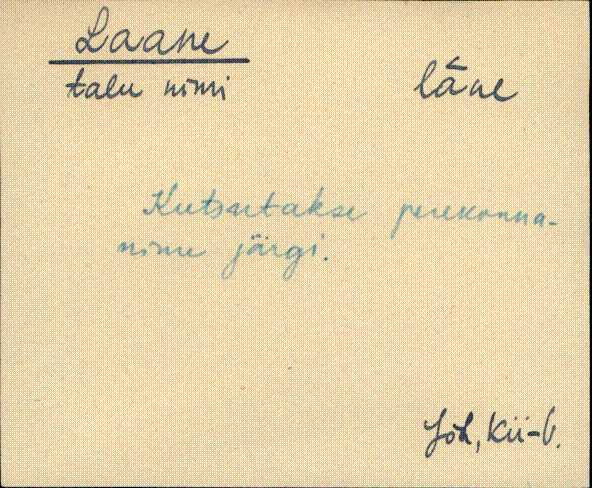 Laane
talu nimi
läne
Kutsutakse perekonna-
nime järgi.
Jõh, Kii-v.